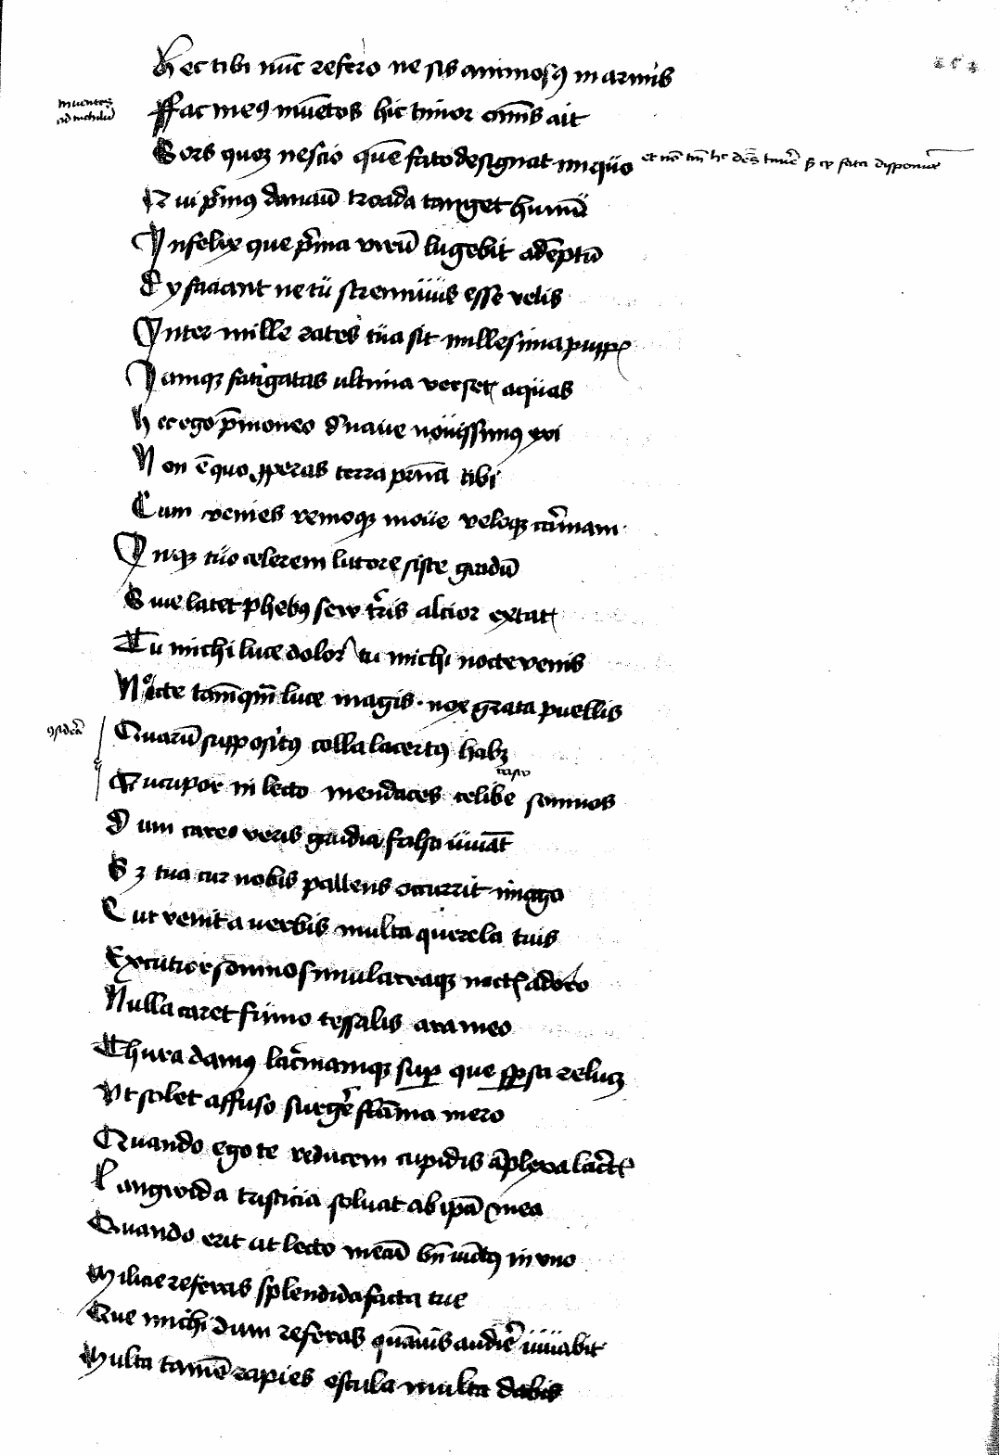 Hec tibi nūc refero ne sis animosꝰ in armis
Fac meꝰ īuētos hic timor om̄is ait
Sors quoqꝫ nescio quē fato designat iniquo
Qui p̄mus danaū troada tanget humū
Infelix que p̄ma virū lugebit adēptū
Dy faciant ne tu strennuus esse velis
Inter mille rates tua sit millesima puppis
Iamqꝫ fatigatas ultima verset aquas
Hec ego p̄moneo d' naue nouissimꝰ exi
Non ē quo ꝓperas terra p̄na tibi
Cum venies remoqꝫ moue veloqꝫ carinam
Inqꝫ tuo celerem litore siste gradū
Siue latet phebꝰ seu terris altior extat
Tu michi luce dolor tu michi nocte venis
Nocte tamē qm̄ luce magis nox grata puellis
Quarū suppositꝰ colla lacertꝰ habꝫ
Aucupor in lecto mendaces celibe somnos
Dum careo veris gaudia falsa iuuāt
Sꝫ tua cur nobis pallens occurrit imago
Cur venit a verbis multa querela tuis
Excutior somno simulacraqꝫ noctis adoro
Nulla caret fumo tessalis ara meo
Thura damꝰ lacrimamqꝫ suꝑ que sparsa relucꝫ
Ut solet affuso surgere flāma mero
Quando ego te reducem cupidis āplexa lacertis
Langwida tristicia soluar ab ipā mea
Quando erit ut lecto mecū bn̄ iūctꝰ in vno
Milicie referas splendida facta tue
Que michi dum referas quāuis audire iuuabit
Multa tamē rapies oscula multa dabis